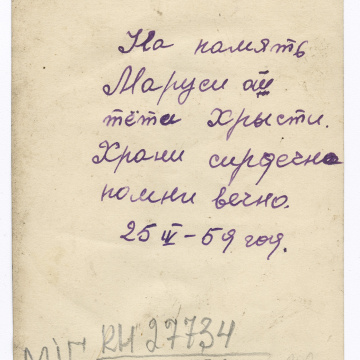 На память
Маруси от
тёти Хрысти.
Храни сирдечно
помни вечно.
25 IV-59 год.
RH 27734